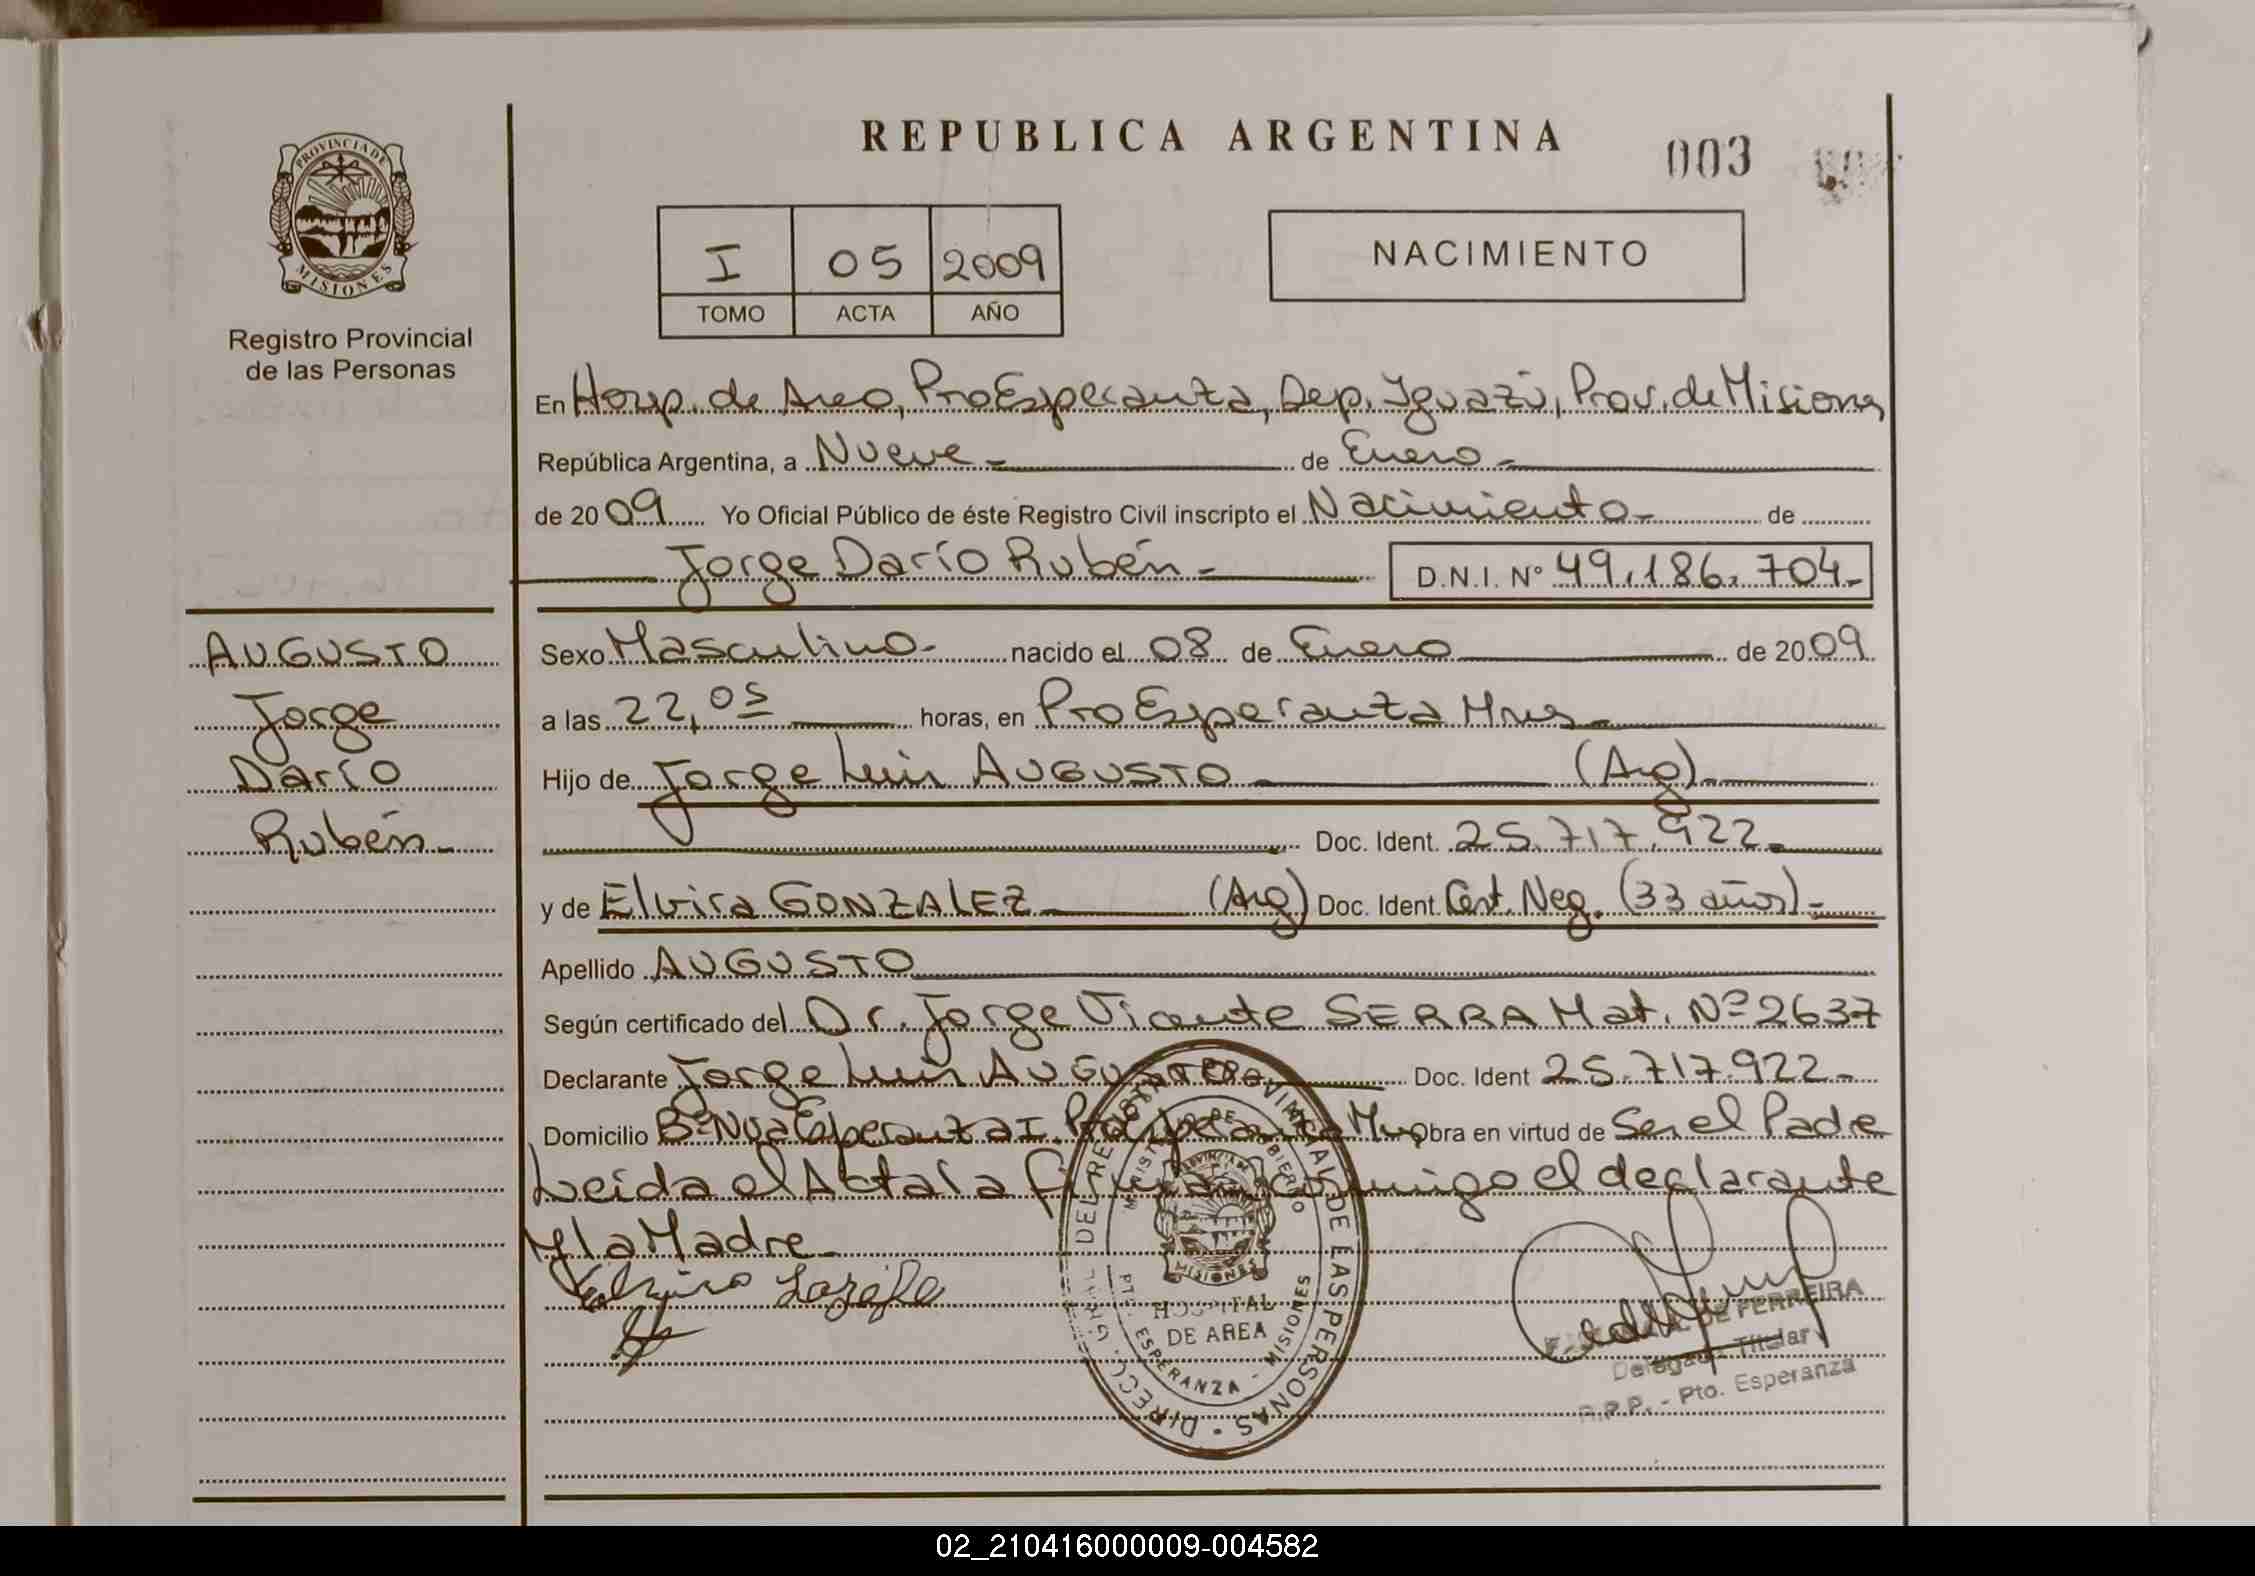 REPUBLICA ARGENTINA
003
PROVINCIA DE
MISIONES
Registro Provincial
de las Personas
I 05 2009
TOMO ACTA AÑO
NACIMIENTO
En Hosp. de Area, Pto Esperanza, Dep. Iguazú, Prov. de Misiones
República Argentina, a Nueve- de Enero-
de 2009 Yo Oficial Público de éste Registro Civil inscripto el Nacimiento- de
Jorge Darío Rubén- D.N.I. Nº 49.186.704-
AUGUSTO
Jorge
Darío
Rubén-
Sexo Masculino- nacido el 08 de Enero de 2009
a las 22,05 horas, en Pto Esperanza Mnes-
Hijo de Jorge Luis AUGUSTO (Arg)-
Doc. Ident. 25.717.922-
y de Elvira GONZALEZ (Arg) Doc. Ident. Cert. Neg. (33 años)-
Apellido AUGUSTO
Según certificado del Dr. Jorge Vicente SERRA Mat. Nº 2637
Declarante Jorge Luis AUGUSTO Doc. Ident 25.717.922-
Domicilio Bº Nva Esperanza I. Pto Esperanza Mnes Obra en virtud de Ser el Padre
Leida el Acta la firman conmigo el declarante
y la Madre-
DIRECC. GRAL. DEL REGISTRO PROVINCIAL DE LAS PERSONAS
MINISTERIO DE GOBIERNO
PROVINCIA DE
MISIONES
HOSPITAL
DE AREA
PTO. ESPERANZA - MISIONES
DE FERREIRA
Delegada Titular
R.P.P. - Pto. Esperanza
02_210416000009-004582